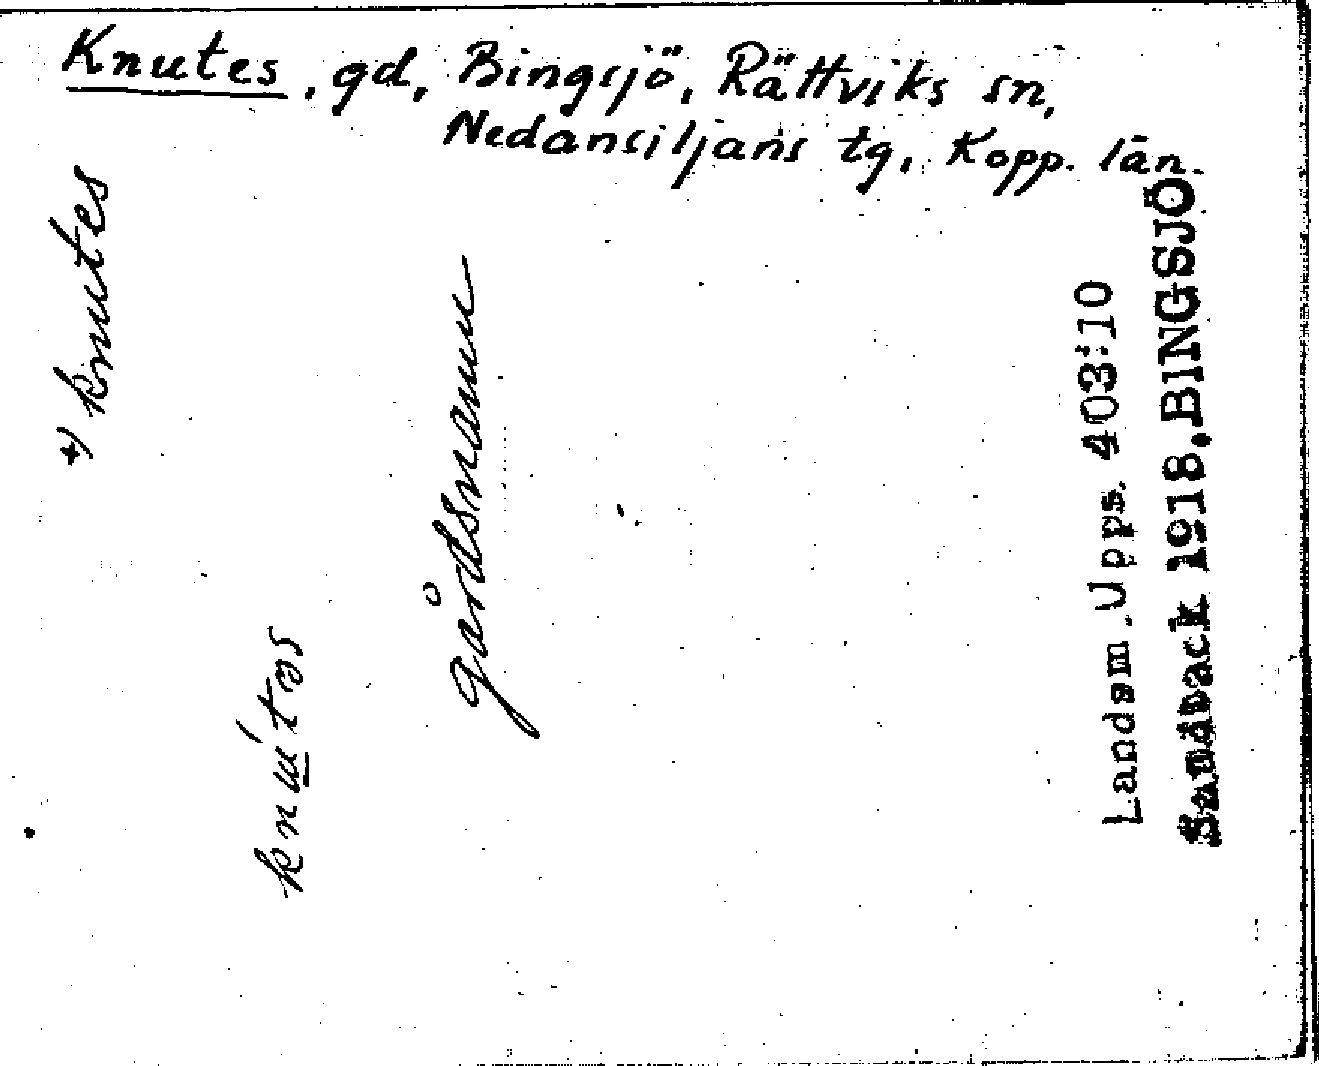 Knutes, gd, Bingsjö, Rättviks sn,
Nedansiljans tg, Kopp. län.
+) knutes
knútəs
gårdsnamn
Landsm. Upps. 403:10
Sandback 1918. BINGSJÖ